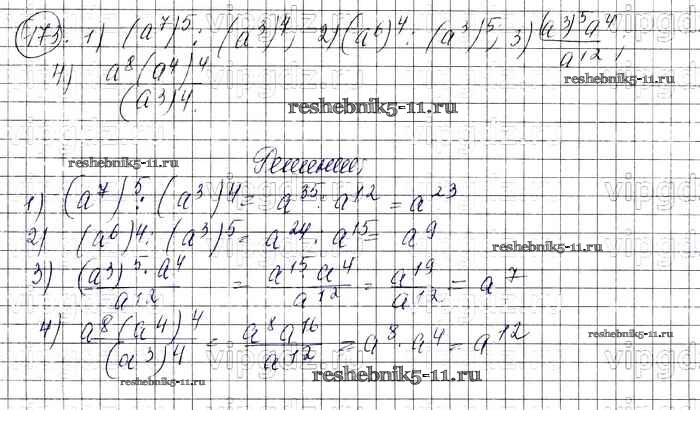 473. 1) (a⁷)⁵ : (a³)⁴, 2) (a⁶)⁴ : (a³)⁵, 3) (a³)⁵a⁴ / a¹²,
4) a⁸(a⁴)⁴ / (a³)4.
reshebnik5-11.ru
reshebnik5-11.ru Решение,
1) (a⁷)⁵ : (a³)4 = a³⁵ : a¹² = a²³
2) (a⁶)4 : (a³)⁵ = a²⁴ : a¹⁵ = a⁹
reshebnik5-11.ru
3) (a³)⁵ · a⁴ / a¹² = a¹⁵ · a⁴ / a¹² = a¹⁹ / a¹² = a⁷
4) a⁸(a⁴)⁴ / (a³)4 = a⁸a¹⁶ / a¹² = a⁸ · a⁴ = a¹²
reshebnik5-11.ru
reshebnik5-11.ru
reshebnik5-11.ru